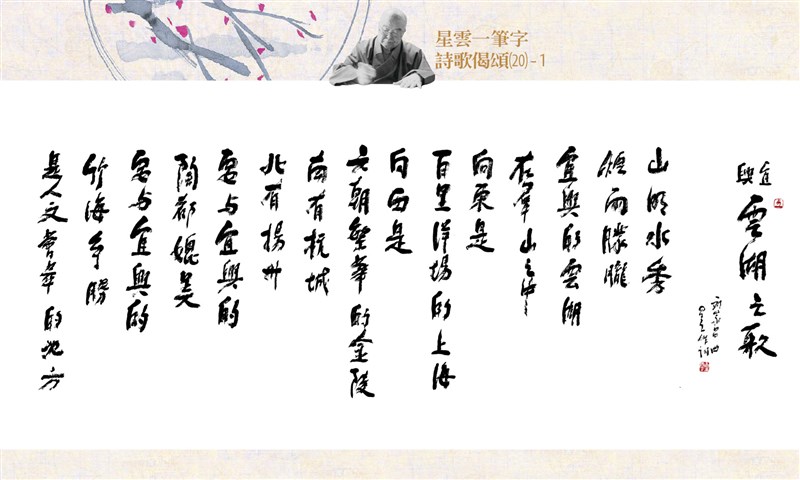 星雲一筆字
詩歌偈頌(20)-1
宜興
雲湖之歌
山明水秀
煙雨朦朧
宜興的雲湖
在羣山之中
向東是
百里洋場的上海
向西是
六朝繁華的金陵
南有杭城
北有揚州
要与宜興的
陶都媲美
要与宜興的
竹海争勝
是人文薈萃的地方